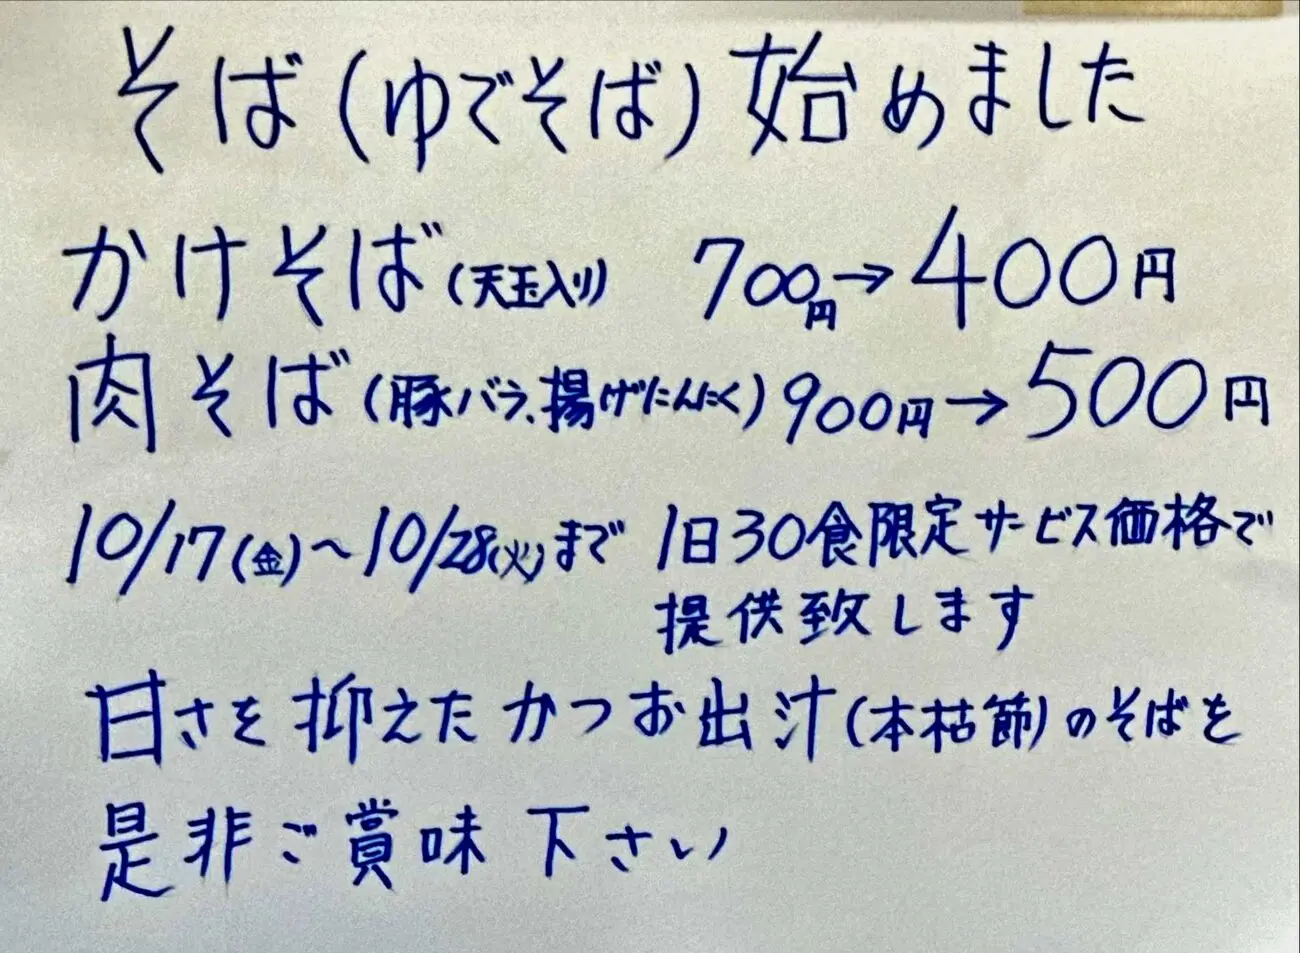 そば(ゆでそば)始めました
かけそば(天玉入り) 700円→400円
肉そば(豚バラ、揚げにんにく)900円→500円
10/17(金)~10/28(火)まで 1日30食限定サービス価格で
提供致します
甘さを抑えたかつお出汁(本枯節)のそばを
是非ご賞味下さい